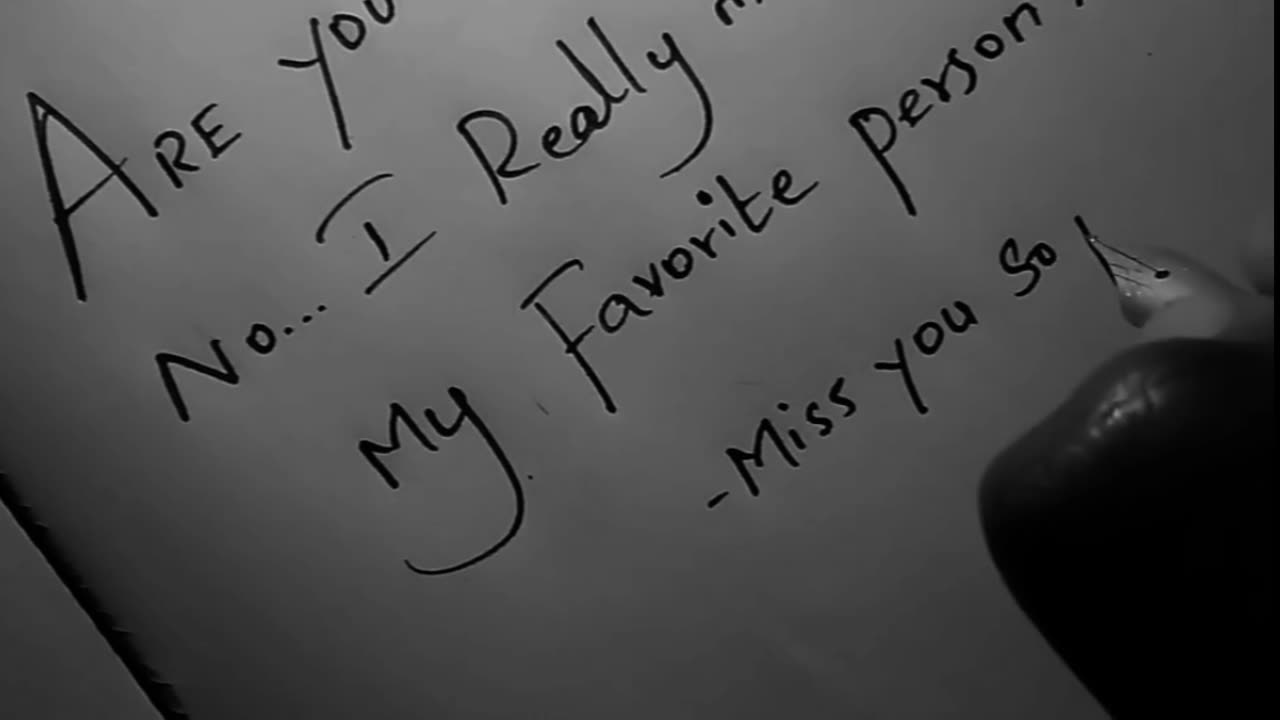 ARE YOU
No... I Really
My Favorite person
- Miss you So